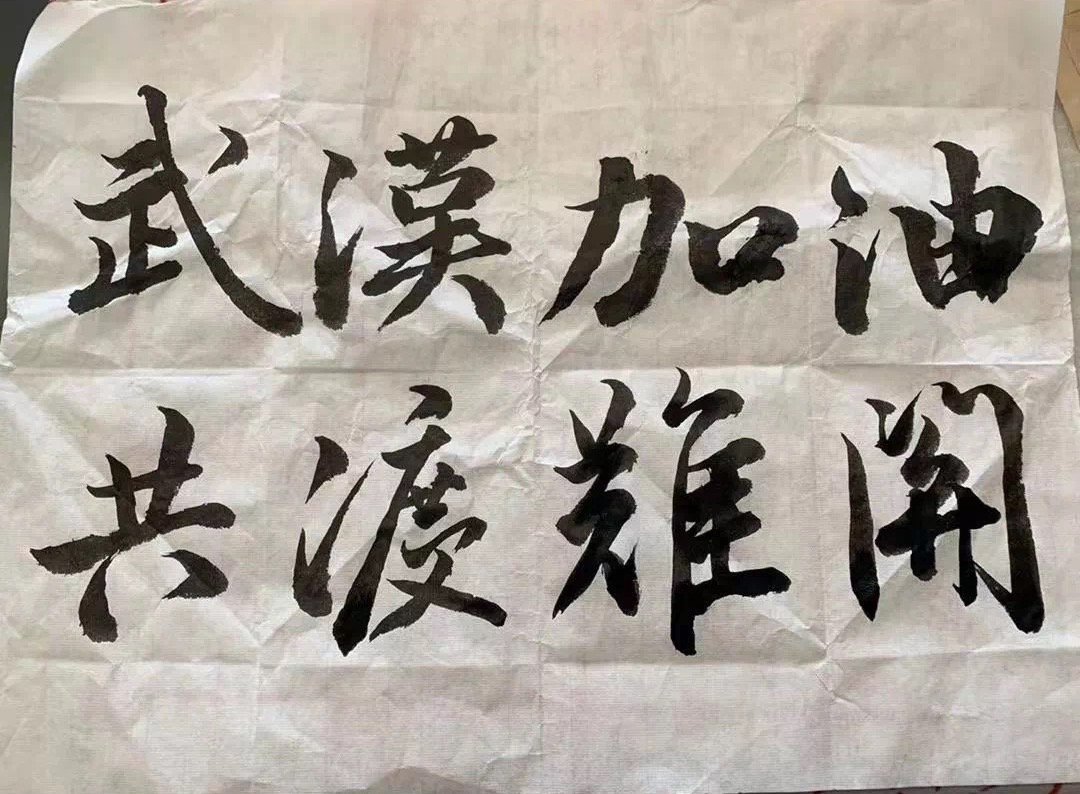 武漢加油
共渡難關